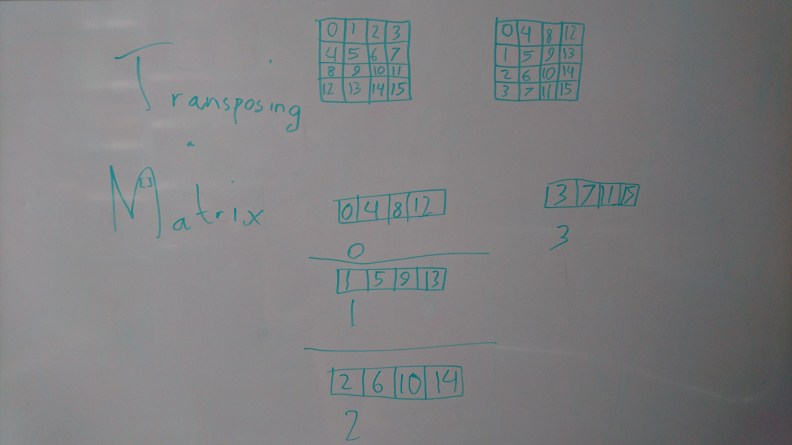 Transposing
a
Matrix
0 1 2 3
4 5 6 7
8 9 10 11
12 13 14 15
0 4 8 12
1 5 9 13
2 6 10 14
3 7 11 15
0 4 8 12
0
1 5 9 13
1
2 6 10 14
2
3 7 11 15
3